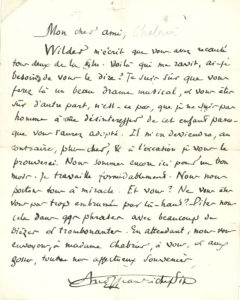 Mon cher ami, Chabrier
Wilder m'écrit que vous avez écouté
tous deux de la fête. Voilà qui me ravit, ai-je
besoin de vous le dire? Je suis sûr que vous
ferez là un beau drame musical, et vous êtes
sûr d'autre part, n'est-ce pas, que je ne suis pas
homme à me désintéresser de cet enfant parce
que vous l'avez adopté. Il m'en deviendra, au
contraire, plus cher, & à l'occasion je vous le
prouverai. Nous sommes encore ici pour un bon
mois. Je travaille formidablement. Nous nous
portons tous à miracle. Et vous? Ne vous êtes
vous pas trop embrumé par là-haut? Dites-nous
cela dans qqs phrases avec beaucoup de
dièzes et trombonantes. En attendant, nous vous
envoyons, à madame Chabrier, à vous, et aux
gosses, toutes nos affectueux souvenirs